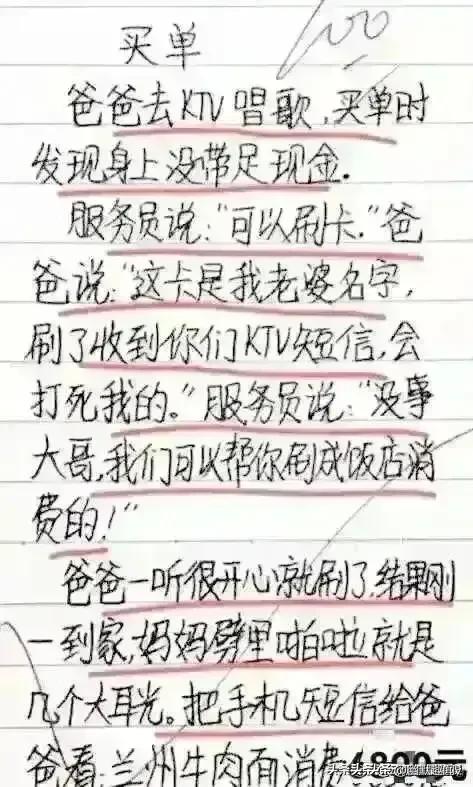 100
买单
爸爸去KTV唱歌,买单时
发现身上没带足现金.
服务员说:"可以刷卡."爸
爸说:"这卡是我老婆名字,
刷了收到你们KTV短信,会
打死我的."服务员说:"没事
大哥,我们可以帮你刷成饭店消
费的!"
爸爸一听很开心就刷了,结果刚
一到家,妈妈劈里啪啦就是
几个大耳光。把手机短信给爸
爸看:兰州牛肉面消费6800元
头条